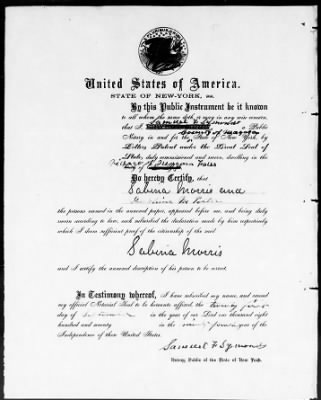 United States of America.
STATE OF NEW-YORK, ss.
By this Public Instrument be it known
to all whom the same doth or may in any wise concern,
that I, Samuel F Symonds Public
Notary in and for the County of Niagara State of New York, by
Letters Patent under the Great Seal of
State, duly commissioned and sworn, dwelling in the
Village of Niagara Falls
Do hereby Certify, that
Sabina Morris and
the persons named in the annexed paper, appeared before me, and being duly
sworn according to law, each subscribed the declaration made by them respectively
which I deem sufficient proof of the citizenship of the said
Sabina Morris
and I certify the annexed description of his person to be correct.
In Testimony whereof, I have subscribed my name, and caused
my official Notarial Seal to be hereunto affixed, the twenty
day of in the year of our Lord one thousand eight
hundred and seventy in the year of the
Independence of these United States.
Samuel F Symonds
Notary Public of the State of New York.